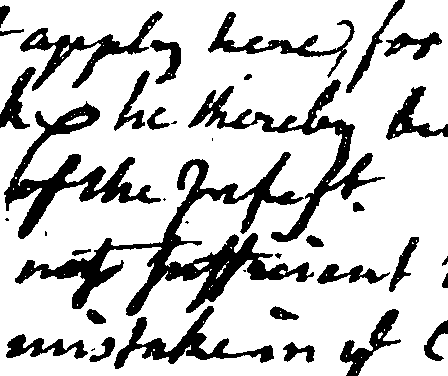 apply here, for
he thereby
of the Infest.
not sufficient
mistake in